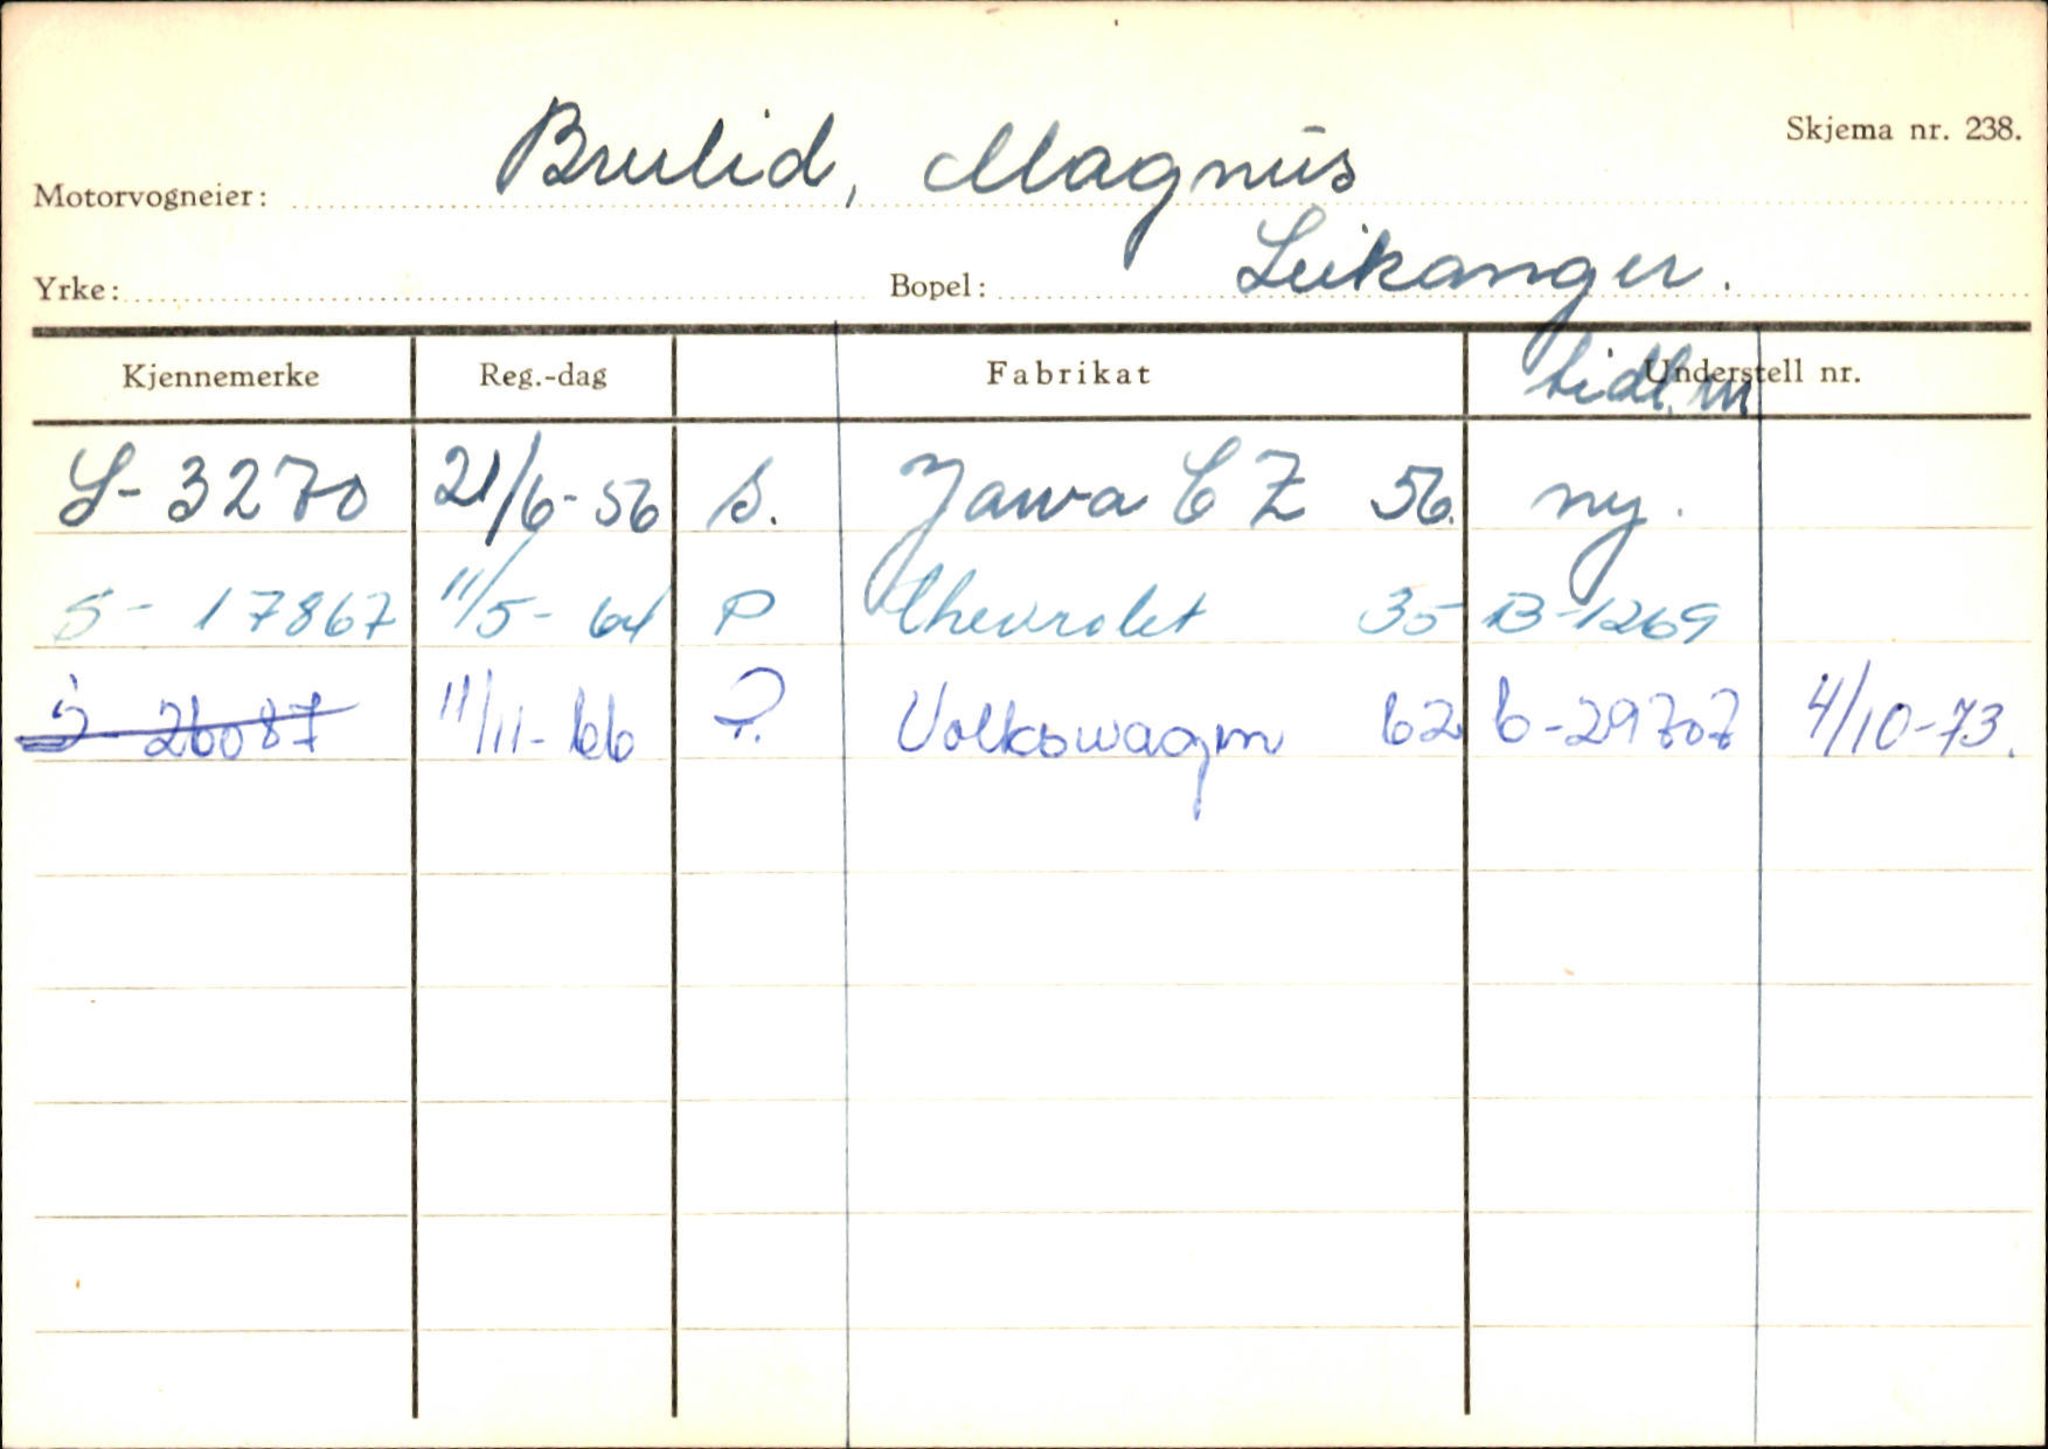 Skjema nr. 238.
Motorvogneier: Brulid, Magnus
Yrke: Bopel: Leikanger.
Kjennemerke Reg.-dag Fabrikat Understell nr. tidl. m
S-3270 21/6-56 s. Jawa CZ 56. ny.
S-17867 11/5-64 P Chevrolet 35 B-1269
S-26087 11/11-66 P. Volkswagen 62 6-29707 4/10-73.